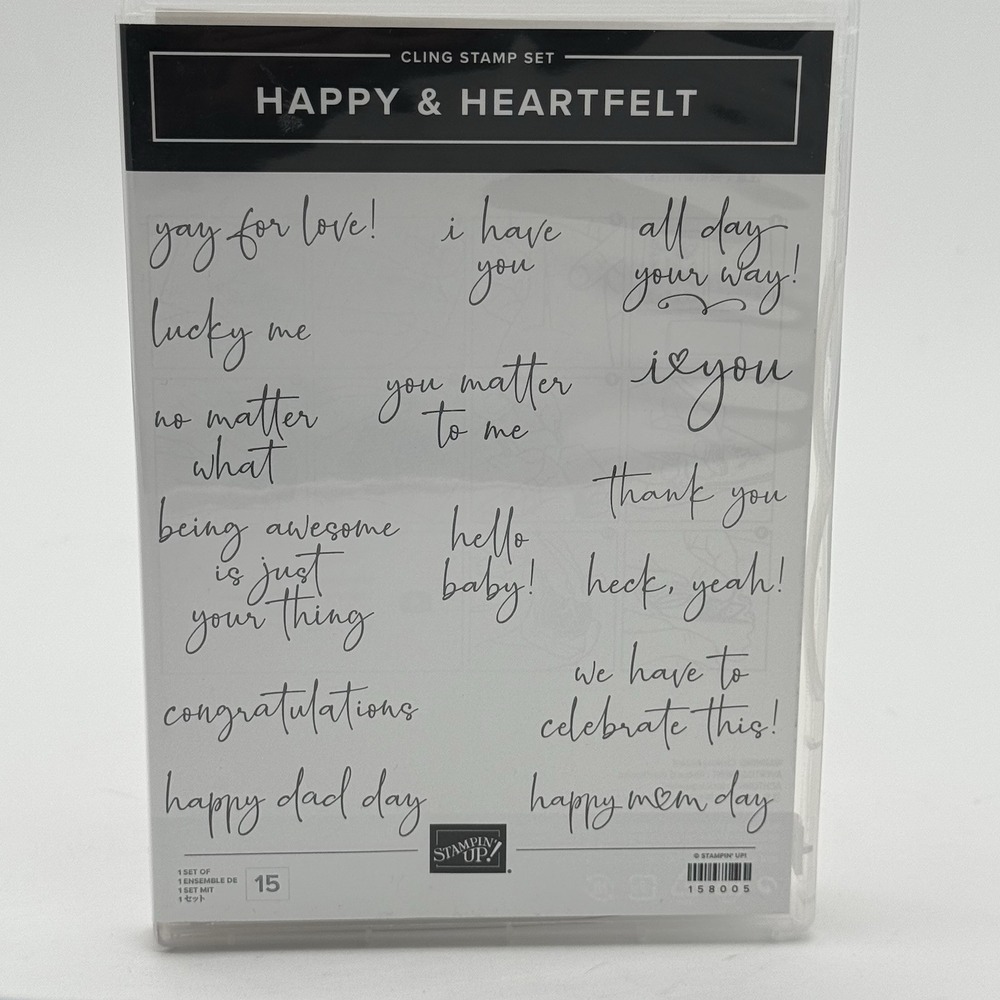 CLING STAMP SET
HAPPY & HEARTFELT
yay for love!
i have
you
all day
your way!
lucky me
i♡you
you matter
to me
no matter
what
thank you
being awesome
is just
your thing
hello
baby!
heck, yeah!
we have to
celebrate this!
congratulations
happy dad day
happy m♡m day
STAMPIN' UP!
1 SET OF
1 ENSEMBLE DE
1 SET MIT
1セット
15
© STAMPIN' UP!
158005